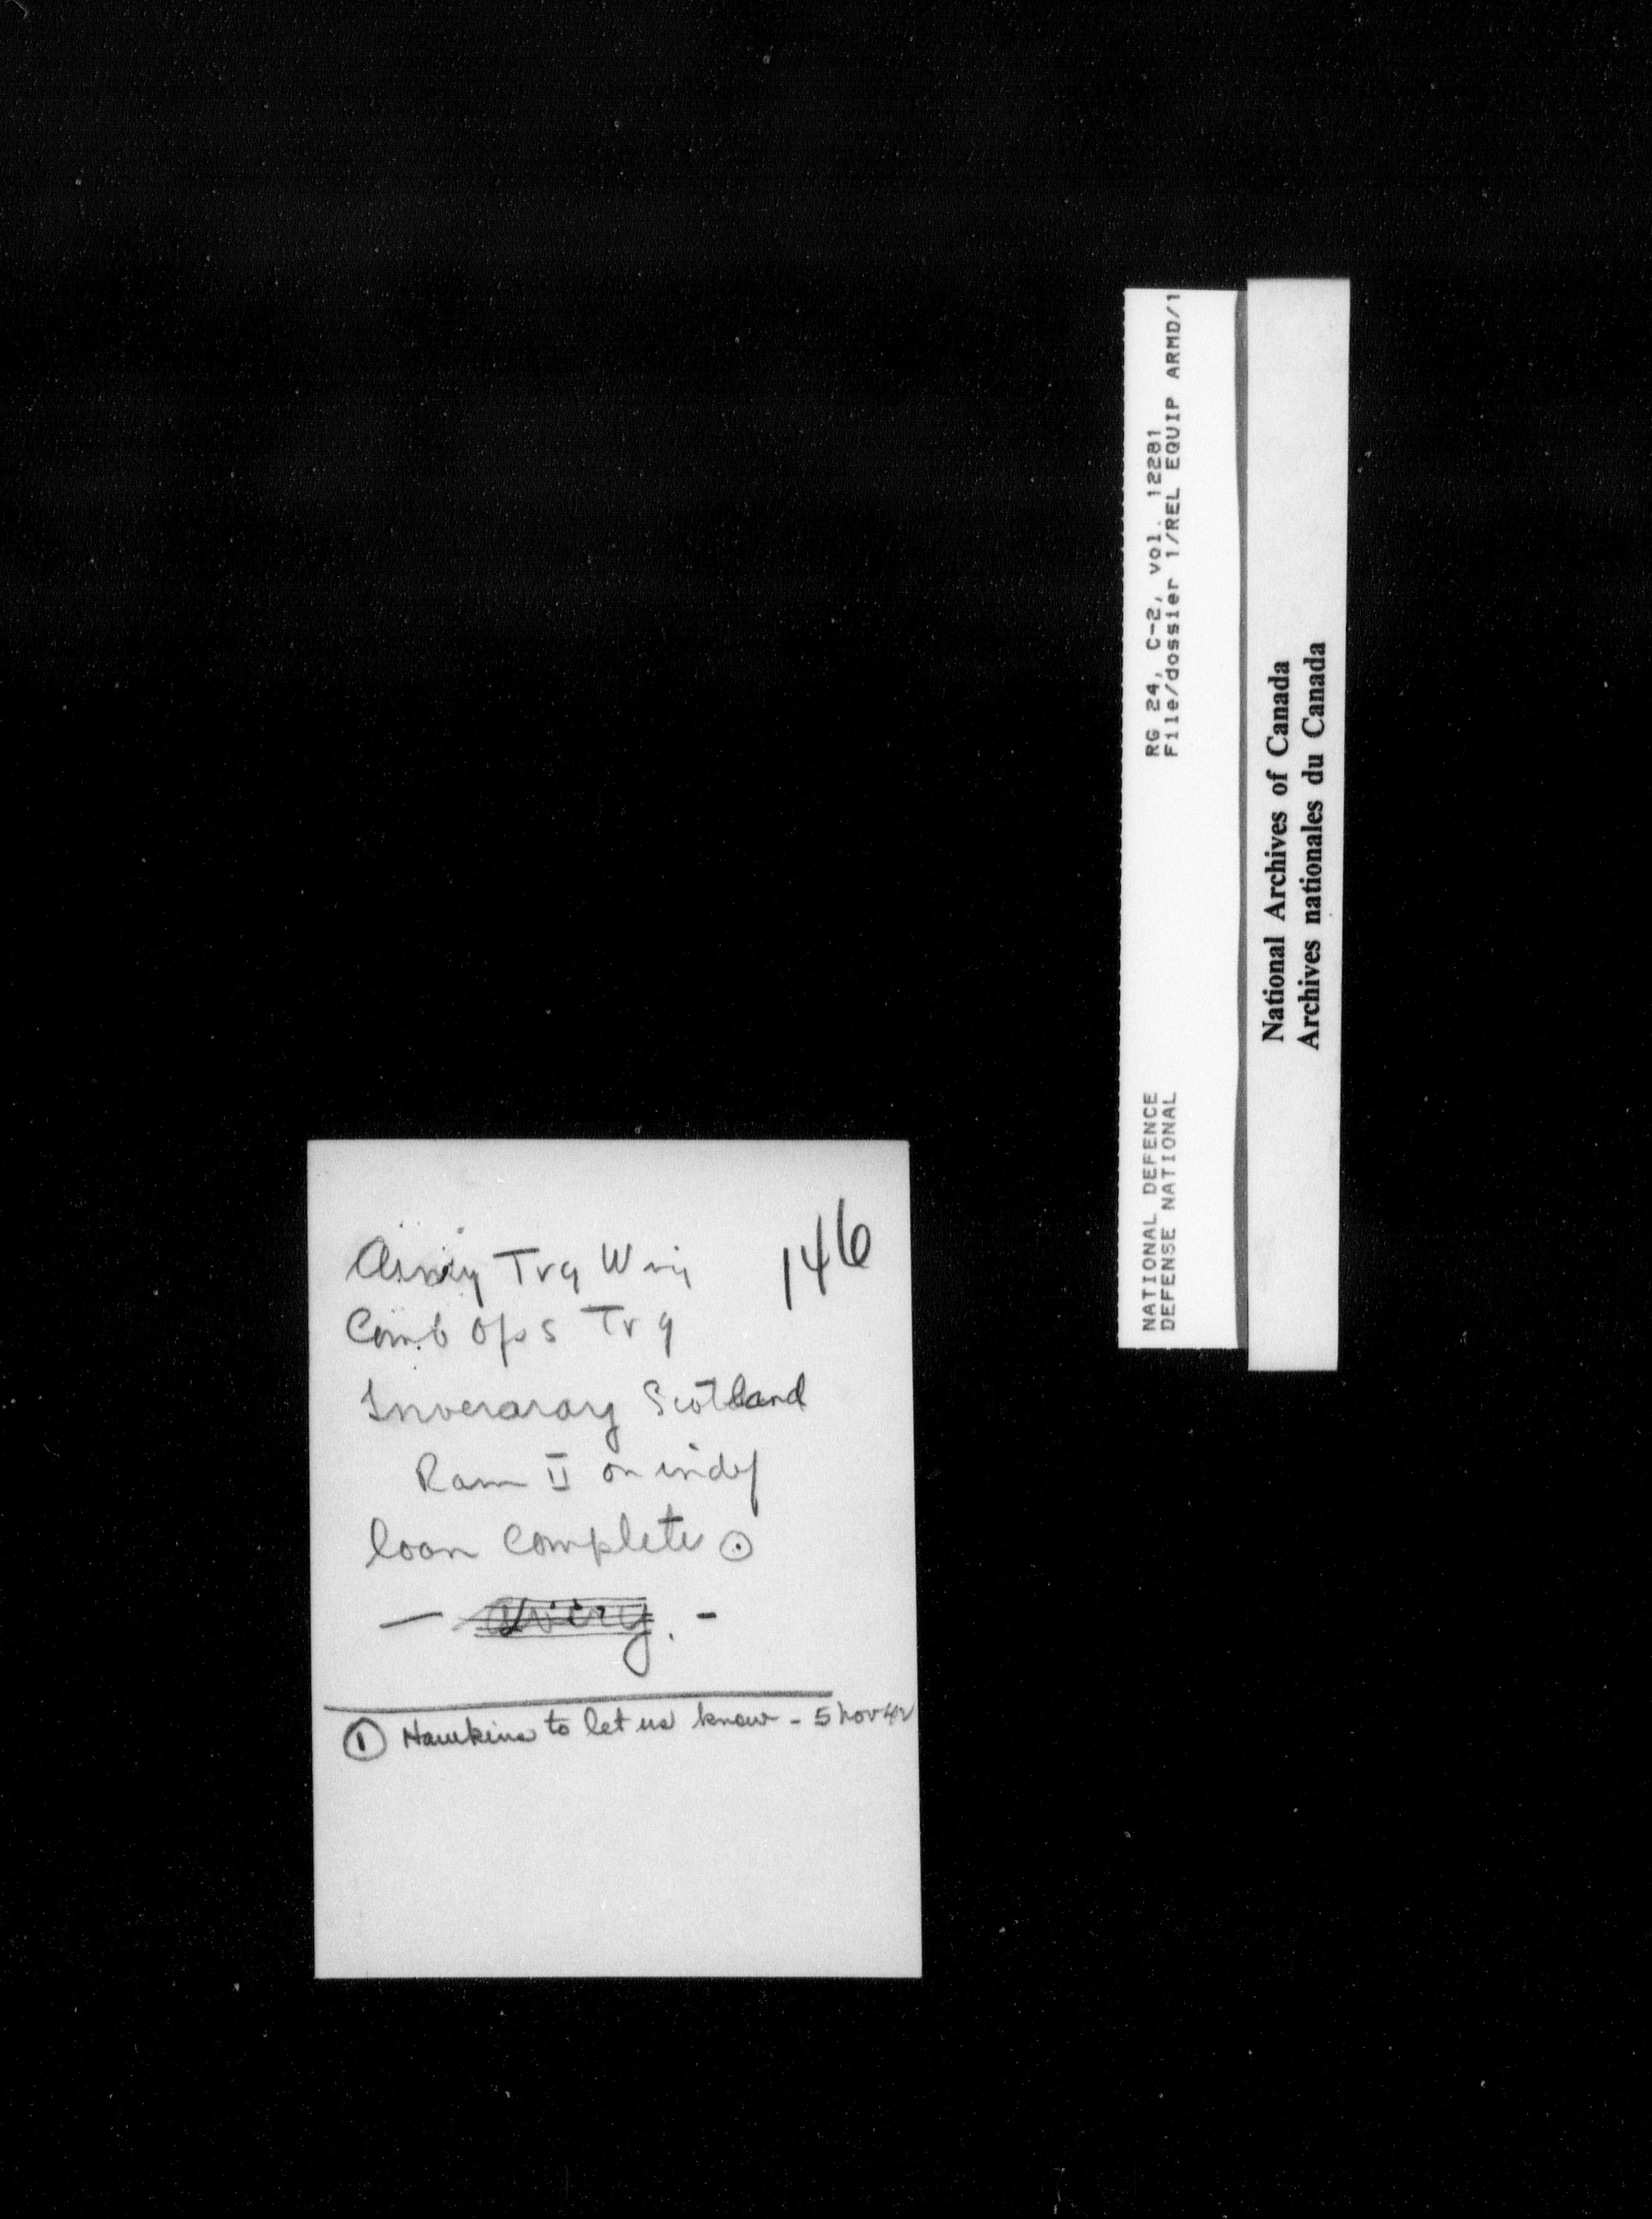 146
Army Trg Wing
Comb Ops Trg
Inveraray Scotland
Ram II on indef
loan complete ⊙
— —
① Hawkins to let us know - 5 Nov 42
NATIONAL DEFENCE
DEFENSE NATIONAL
RG 24, C-2, vol. 12281
File/dossier 1/REL EQUIP ARMD/1
National Archives of Canada
Archives nationales du Canada